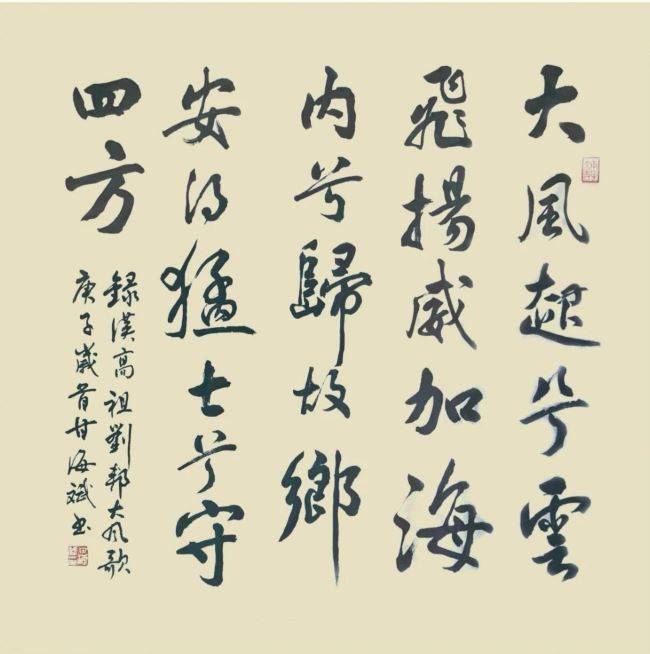 大風起兮雲
飛揚威加海
内兮歸故鄉
安得猛士兮守
四方
録漢高祖劉邦大风歌
庚子歲首甘海斌书